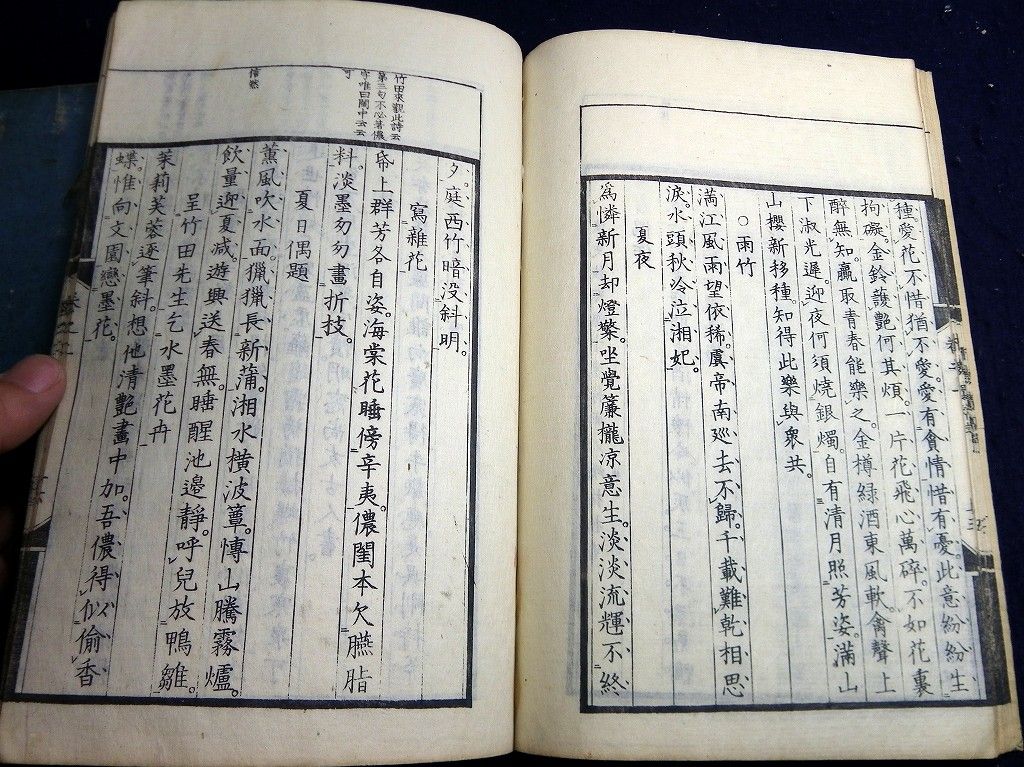 種愛花不惜猶不愛。愛有貪情惜有憂。此意紛紛生
拘礙。金鈴護艷何其煩。一片花飛心萬碎。不如花裏
醉無知。贏取青春能樂之。金樽緑酒東風軟。禽聲上
下淑光遲。迎夜何須燒銀燭。自有清月照芳姿。滿山
山櫻新移種。知得此樂與衆共。
○雨竹
滿江風雨望依稀。虞帝南巡去不歸。千載難乾相思
淚。水頭秋冷泣湘妃。
夏夜
爲憐新月却燈檠。坐覺簾櫳凉意生。淡淡流輝不終
夕。庭西竹暗没斜明。
寫雜花
竹田來觀此詩云
第三句不必著儂
字唯曰閨中云云
可
帋上群芳各自姿。海棠花睡傍辛夷。儂閨本欠臙脂
料。淡墨匆匆畫折技。
夏日偶題
信然
薫風吹水面。獵獵長新蒲。湘水横波簟。愽山騰霧爐。
飲量迎夏减。遊興送春無。睡醒池邊靜。呼兒放鴨雛。
呈竹田先生乞水墨花卉
茉莉芙蓉逐筆斜。想他清艷畫中加。吾儂得似偷香
蝶。惟向文園戀墨花。